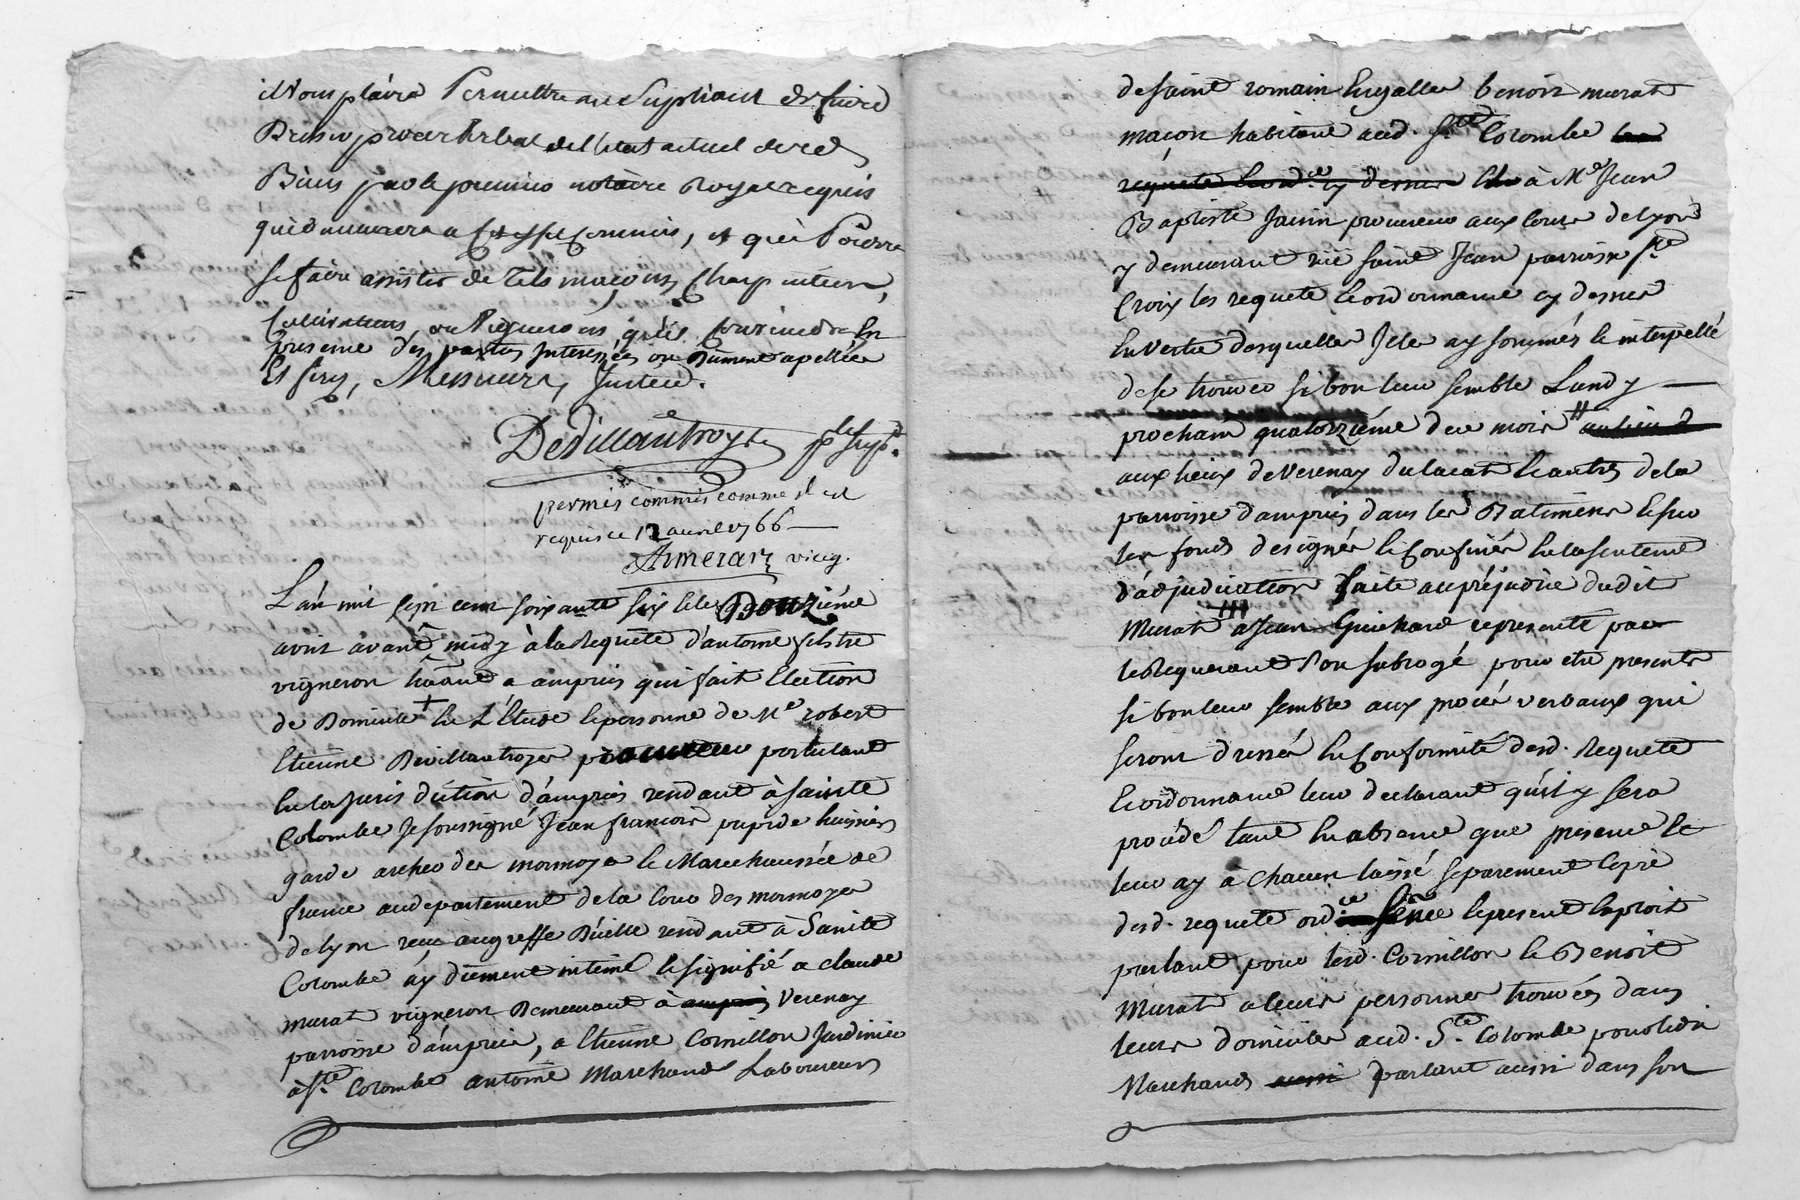 il vous plaira Permettre au Supliant de faire
Dresser procès verbal de l'état actuel desd.
Biens par le premier notaire Royal requis
qui demeurera a Cet effet Commis, et qui Poura
se faire assister de tels maçons, Charpentiers,
Cultivateurs, ou Vignerons, qu'il Conviendra En
presence des parties Interessées ou Duement apellées
Et ferez, Messieurs, Justice.
Devillantroys pr le supt.
permis commis comme il est
requis ce 12 avril 1766
Armerar viceg.
L'an mil sept cent soixante six et le Douzième
avril avant midy à la Requete d'antoine
vigneron hãant a ampuis qui fait Election
de Domicile + En L'Etude et personne de Me robert
Etienne Devillantroyes procureur postulant
En la Jurisdiction d'ampuis rendant à sainte
Colombe Je soussigné Jean francois huissier
garde archer des monnoyes et Marechaussée de
france au departement de la Cour des monnoyes
de lyon recu au greffe rendant à Sainte
Colombe ay Duement intimé et signifié a claude
murat vigneron Demeurant à ampuis Verenay
parroisse d'ampuis, a Etienne Cornillon Jardinier
à Ste Colombe antoine Marchand Laboureur
de saint romain Engallee benoit murat
maçon habitant aud. Ste Colombe les
requete et ord.ce cy dessus Et a à Me Jean
Baptiste Janin procureur aux Cours de lyon
y demeurant rüe saint Jean parroisse Ste
Croix les requete et ordonnance cy dessus
En Vertu desquelles Je les ay sommés et interpellé
de se trouver si bon leur semble Lundy
prochain quatorzième du mois "
aux lieux de Verenay du lacat et autres de la
parroisse dampuis dans les Batimens et sur
les fonds designés et Confinés En la sentence
d'adjudication faite au préjudice dudit
Murat /// a Jean Guichard représenté par
le Requerant son subrogé pour etre presents
si bon leur semble aux procès verbaux qui
seront dressés En Conformité desd. Requete
Et ordonnance leur declarant qu'il y sera
procédé tant En absence que presence et
leur ay à chacun laissé separement Copie
desd. requete ord.ce et present Exploit
parlant pour lesd. Cornillon et Benoit
Murat a leurs personnes trouvés dans
leurs domiciles aud. Ste Colombe pour ledit
Marchand aussi parlant aussi dans son